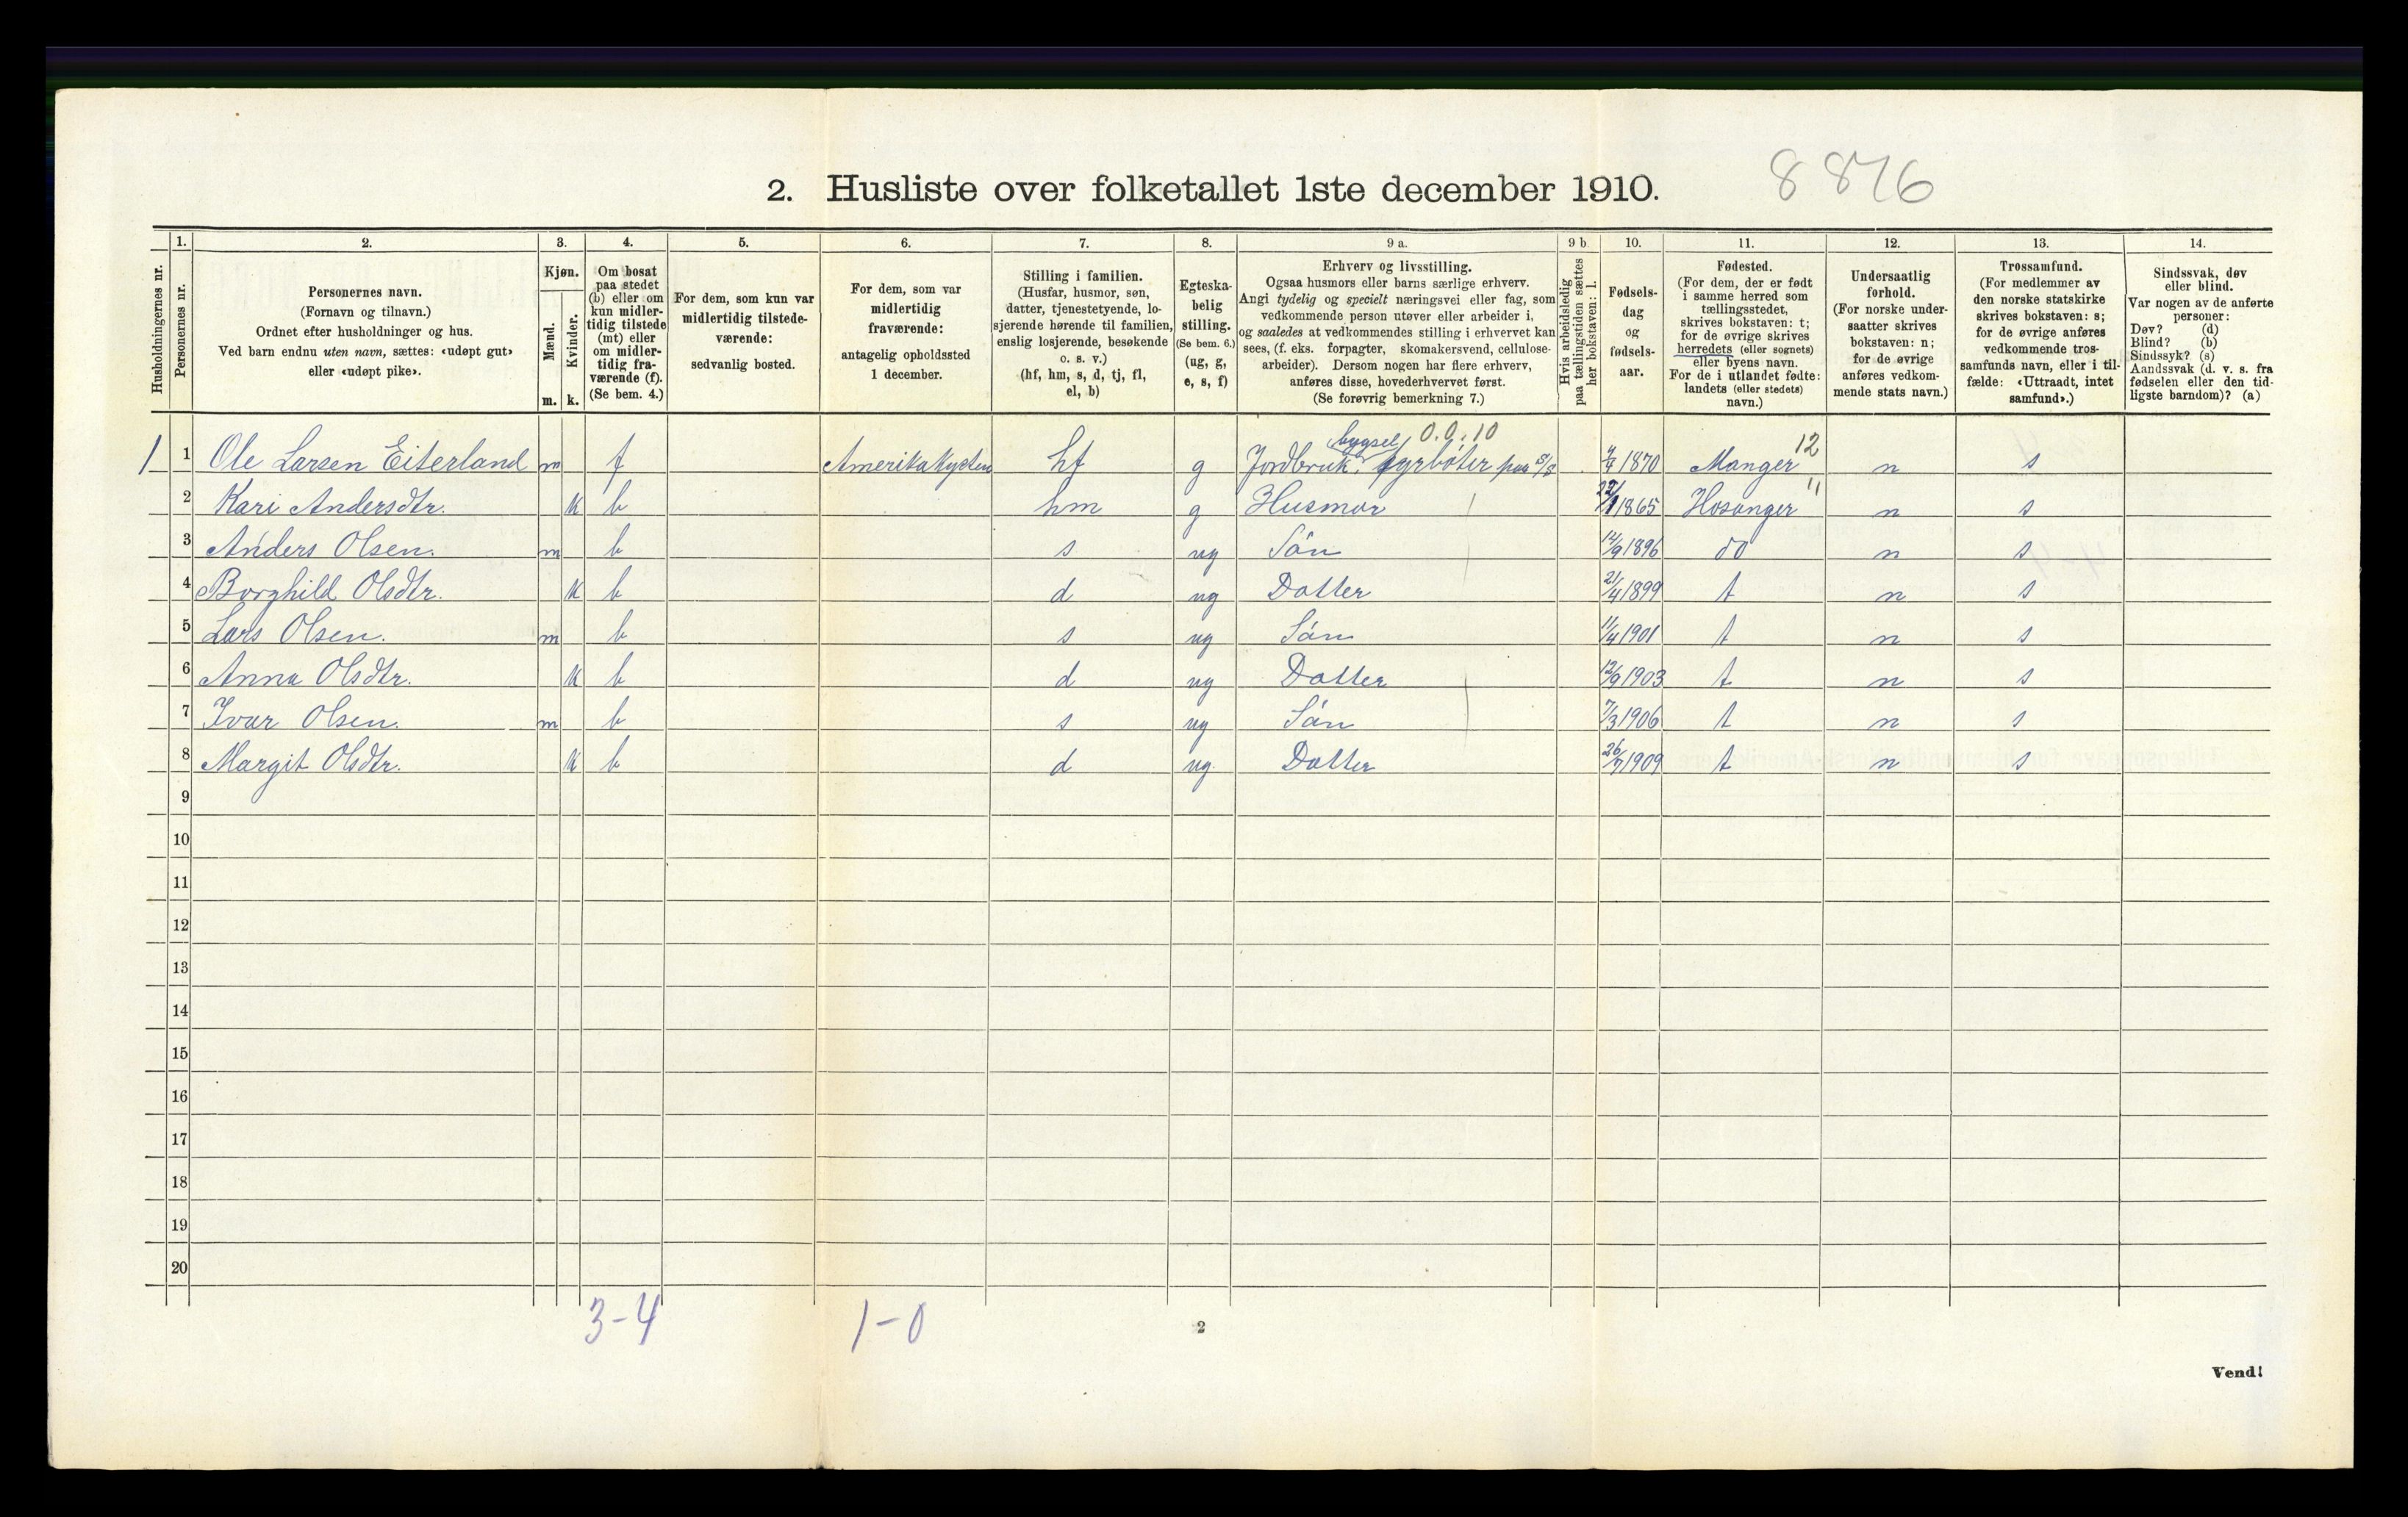 8876
2. Husliste over folketallet 1ste december 1910.
Husholdningernes nr.
1. Personernes nr.
2. Personernes navn.
(Fornavn og tilnavn.)
Ordnet efter husholdninger og hus.
Ved barn endnu uten navn, sættes: «udøpt gut»
eller «udøpt pike».
3. Kjøn.
Mænd. m.
Kvinder. k.
4. Om bosat
paa stedet
(b) eller om
kun midler-
tidig tilstede
(mt) eller
om midler-
tidig fra-
værende (f).
(Se bem. 4.)
5. For dem, som kun var
midlertidig tilstede-
værende:
sedvanlig bosted.
6. For dem, som var
midlertidig
fraværende:
antagelig opholdssted
1 december.
7. Stilling i familien.
(Husfar, husmor, søn,
datter, tjenestetyende, lo-
sjerende hørende til familien,
enslig losjerende, besøkende
o. s. v.)
(hf, hm, s, d, tj, fl,
el, b)
8. Egteska-
belig
stilling.
(Se bem. 6.)
(ug, g,
e, s, f)
9 a. Erhverv og livsstilling.
Ogsaa husmors eller barns særlige erhverv.
Angi tydelig og specielt næringsvei eller fag, som
vedkommende person utøver eller arbeider i,
og saaledes at vedkommendes stilling i erhvervet kan
sees, (f. eks. forpagter, skomakersvend, cellulose-
arbeider). Dersom nogen har flere erhverv,
anføres disse, hovederhvervet først.
(Se forøvrig bemerkning 7.)
9 b. Hvis arbeidsledig
paa tællingstiden sættes
her bokstaven: l.
10. Fødsels-
dag
og
fødsels-
aar.
11. Fødested.
(For dem, der er født
i samme herred som
tællingsstedet,
skrives bokstaven: t;
for de øvrige skrives
herredets (eller sognets)
eller byens navn.
For de i utlandet fødte:
landets (eller stedets)
navn.)
12. Undersaatlig
forhold.
(For norske under-
saatter skrives
bokstaven: n;
for de øvrige
anføres vedkom-
mende stats navn.)
13. Trossamfund.
(For medlemmer av
den norske statskirke
skrives bokstaven: s;
for de øvrige anføres
vedkommende tros-
samfunds navn, eller i til-
fælde: «Uttraadt, intet
samfund».)
14. Sindssvak, døv
eller blind.
Var nogen av de anførte
personer:
Døv? (d)
Blind? (b)
Sindssyk? (s)
Aandssvak (d. v. s. fra
fødselen eller den tid-
ligste barndom)? (a)
bygsel 0.0.10 12
1 1 Ole Larsen Eiterland m f Amerikakysten hf g Jordbruk, fyrbøter paa S/S 1870 Manger n s
2 Kari Andersdtr. k b hm g Husmor 1865 Hosanger 11 n s
3 Anders Olsen. m b s ug Sön 14/9 1896 do n s
4 Borghild Olsdtr. k b d ug Datter 21/4 1899 t n s
5 Lars Olsen. m b s ug Sön 11/4 1901 t n s
6 Anna Olsdtr. k b d ug Datter 12/9 1903 t n s
7 Ivar Olsen. m b s ug Sön 7/3 1906 t n s
8 Margit Olsdtr. k b d ug. Datter 26/7 1909 t n s
9
10
11
12
13
14
15
16
17
18
19
20
3-4 1-0
2
Vend!